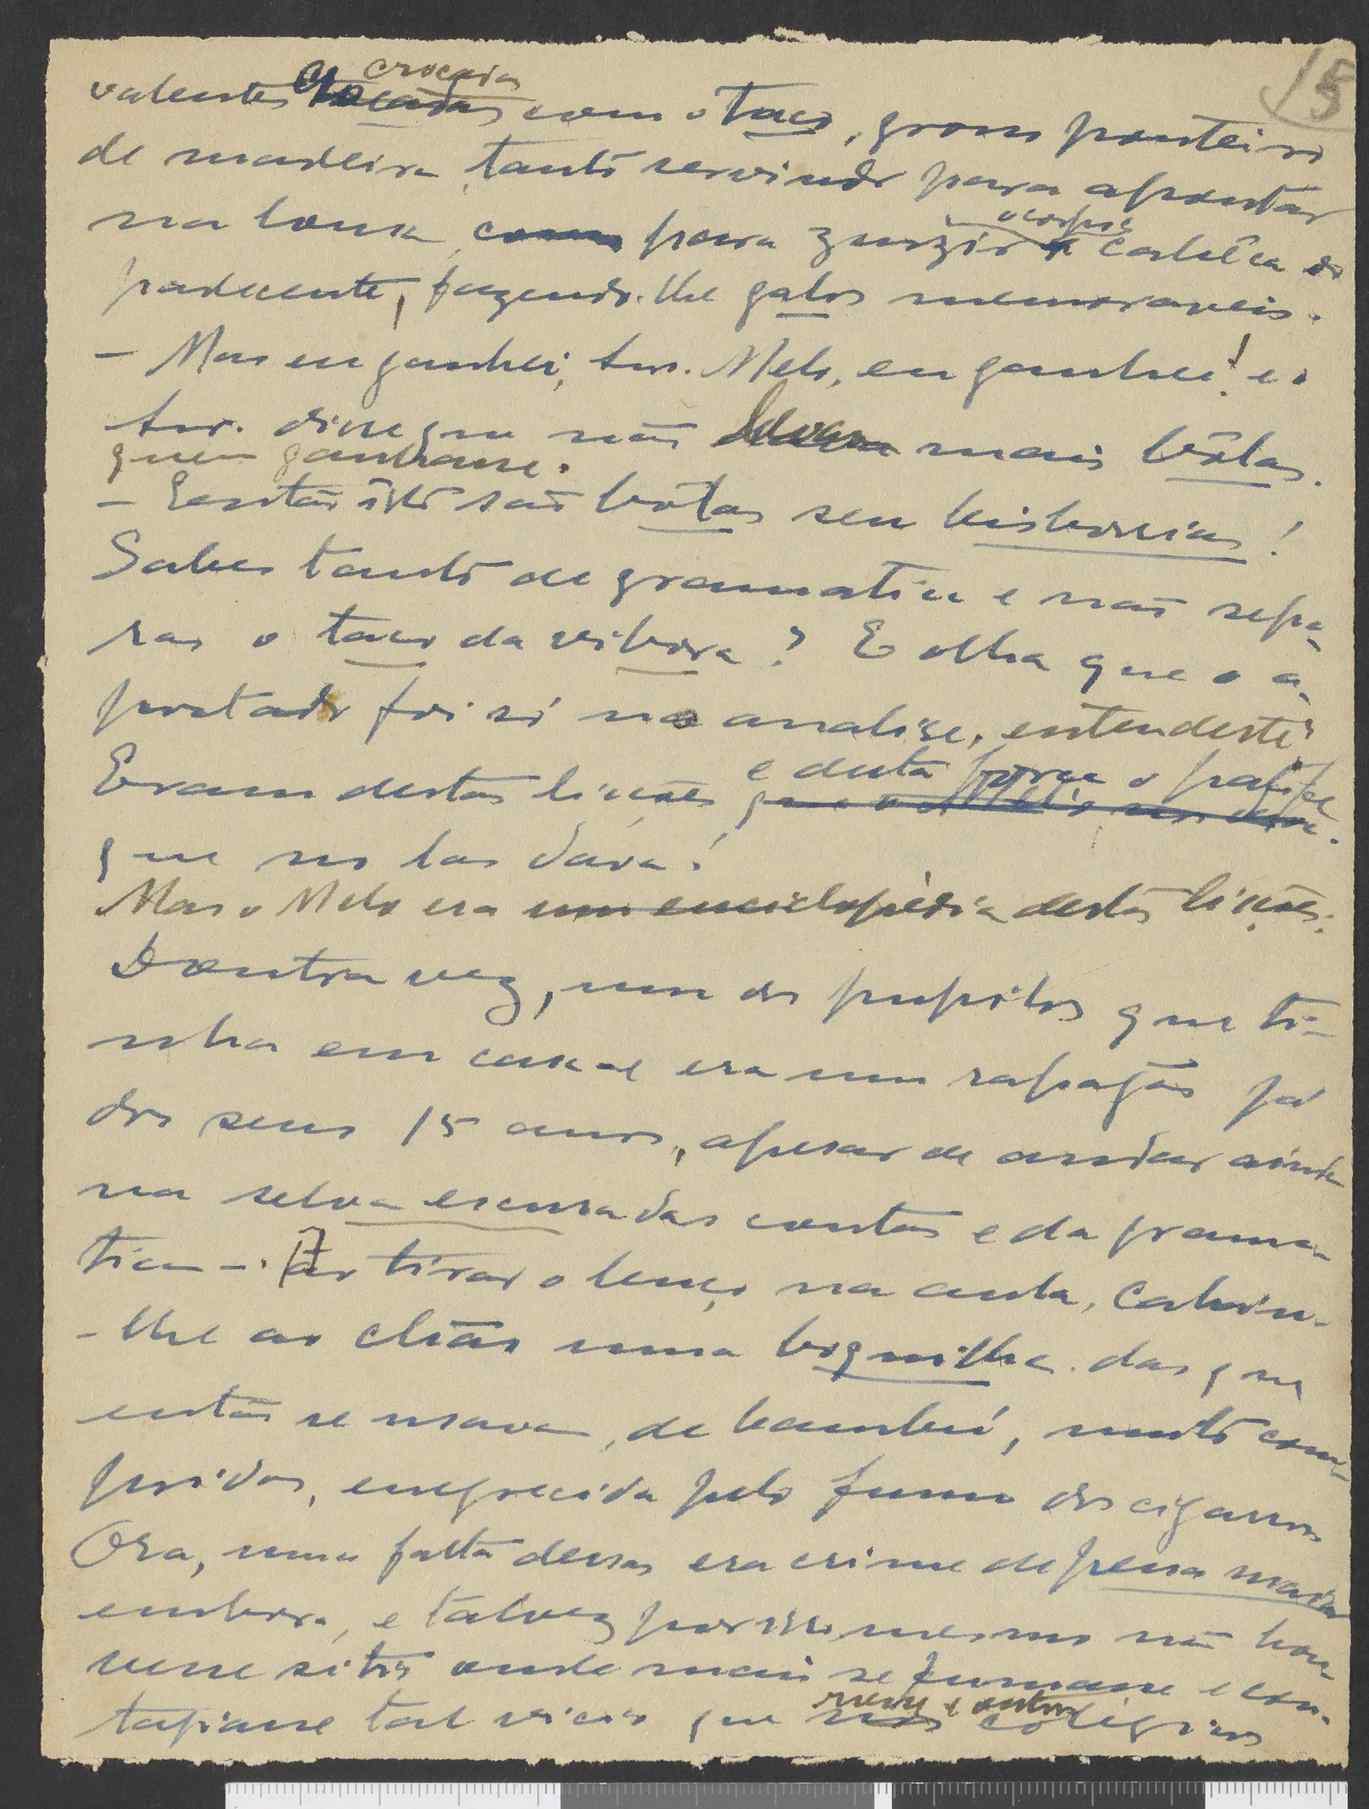 15
crocada
valentes com o taco, grosso ponteiro
de madeira, tanto servindo para apontar
na lousa, como para zurzir o corpo e cabêça do
padecente, fazendo-lhe galos memoraveis.
- Mas eu ganhei, snr. Melo, eu ganhei! e o
snr. disse que não levava mais bólas
quem ganhasse.
- Então isto são bólas seu historias!
Sabes tanto de gramatica e não sepa-
ras o taco da vibora? E olha que o a-
postado foi só na analise, entendeste?
Eram destas lições e desta força o patife
que no las dava!
Mas o Melo era um enciclopédia destas lições.
Doutra vez, um dos pupilos que ti-
nha em casa e era um rapagão já
dos seus 15 anos, apesar de andar ainda
na selva escura das contas e da grama-
tica -. Ao tirar o lenço na aula, cahiu-
-lhe ao chão uma boquilha das que
então se usava, de bambú, muito com-
pridas, enegrecida pelo fumo dos cigarros
Ora, uma falta dessas era crime de pena maior
embora, e talvez por isso mesmo não hou-
vesse sitio onde mais se fumasse e con-
tagiasse tal vicio que colegios